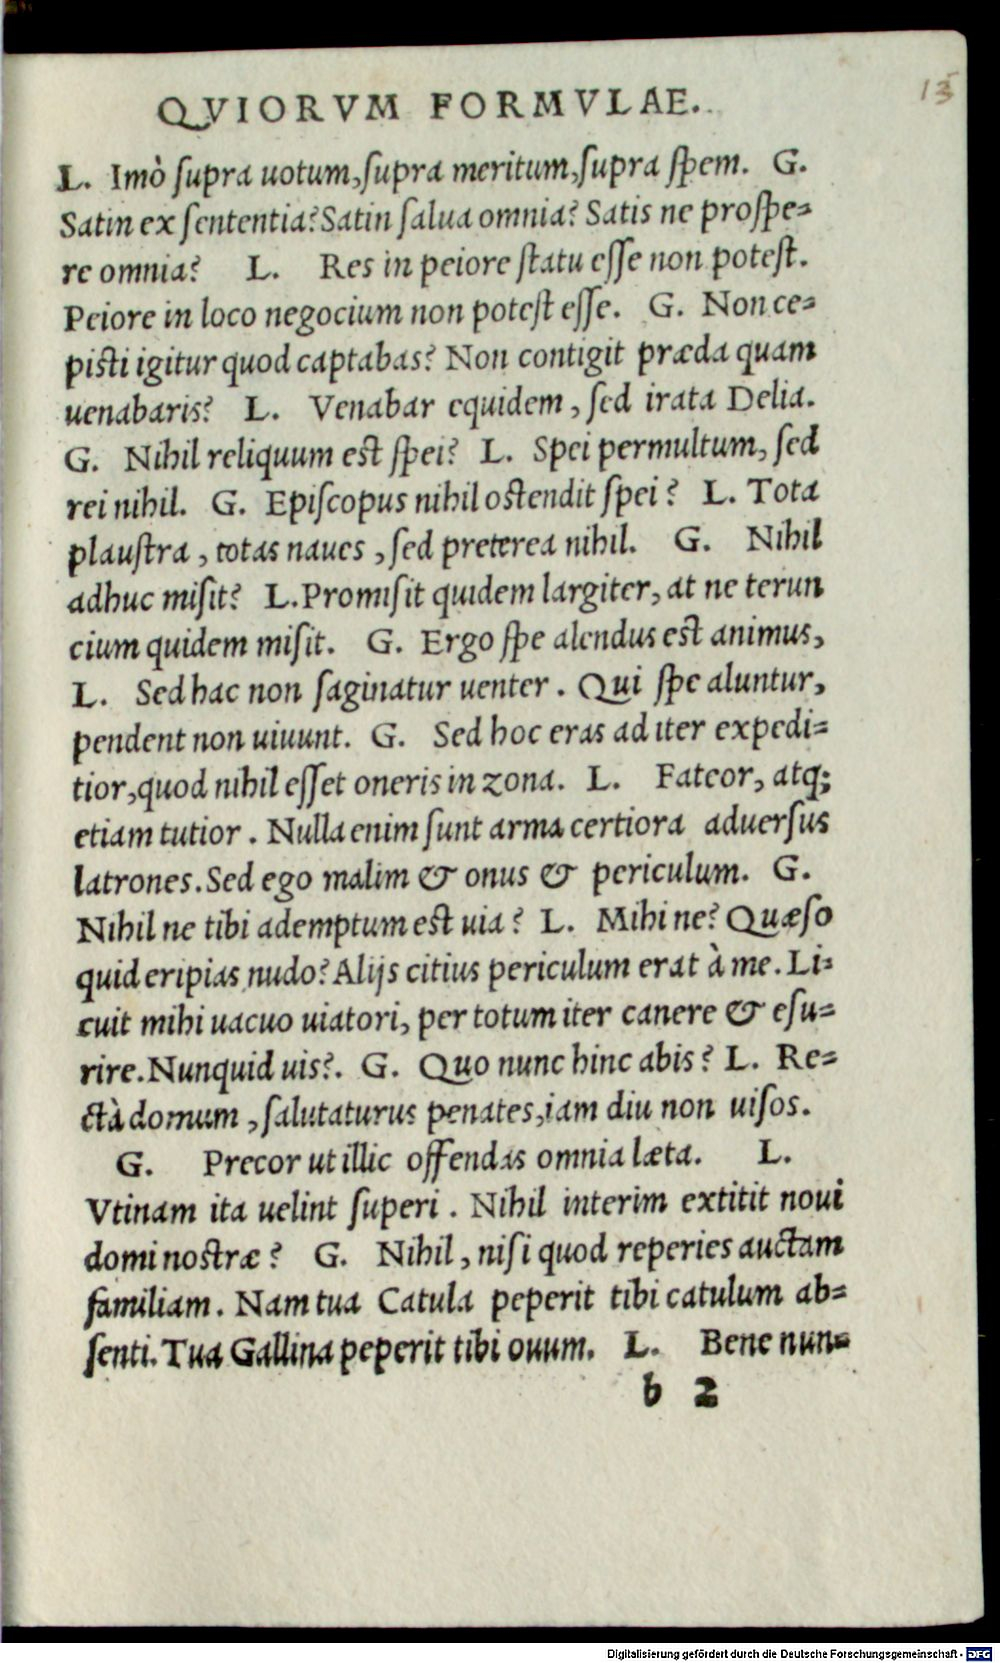 13
QVIORVM FORMVLAE.
L. Imò ſupra uotum, ſupra meritum, ſupra ſpem. G.
Satin ex ſententia? Satin ſalua omnia? Satis ne proſpe=
re omnia? L. Res in peiore ſtatu eſſe non poteſt.
Peiore in loco negocium non poteſt eſſe. G. Non ce=
piſti igitur quod captabas? Non contigit præda quam
uenabaris? L. Venabar equidem, ſed irata Delia.
G. Nihil reliquum eſt ſpei? L. Spei permultum, ſed
rei nihil. G. Epiſcopus nihil oſtendit ſpei? L. Tota
plauſtra, totas naues, ſed preterea nihil. G. Nihil
adhuc miſit? L. Promiſit quidem largiter, at ne terun
cium quidem miſit. G. Ergo ſpe alendus eſt animus,
L. Sed hac non ſaginatur uenter. Qui ſpe aluntur,
pendent non uiuunt. G. Sed hoc eras ad iter expedi=
tior, quod nihil eſſet oneris in zona. L. Fateor, atq;
etiam tutior. Nulla enim ſunt arma certiora aduerſus
latrones. Sed ego malim & onus & periculum. G.
Nihil ne tibi ademptum eſt uia? L. Mihi ne? Quæſo
quid eripias nudo? Alijs citius periculum erat à me. Li=
cuit mihi uacuo uiatori, per totum iter canere & eſu=
rire. Nunquid uis?. G. Quo nunc hinc abis? L. Re=
ctà domum, ſalutaturus penates, iam diu non uiſos.
G. Precor ut illic offendas omnia læta. L.
Vtinam ita uelint ſuperi. Nihil interim extitit noui
domi noſtræ? G. Nihil, niſi quod reperies auctam
familiam. Nam tua Catula peperit tibi catulum ab=
ſenti. Tua Gallina peperit tibi ouum. L. Bene nun=
b 2
Digitalisierung gefördert durch die Deutsche Forschungsgemeinschaft - DFG